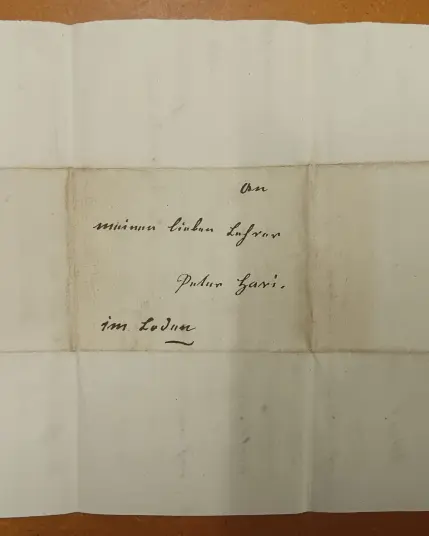 An
meinen lieben Lehrer
Peter Hari.
im Boden